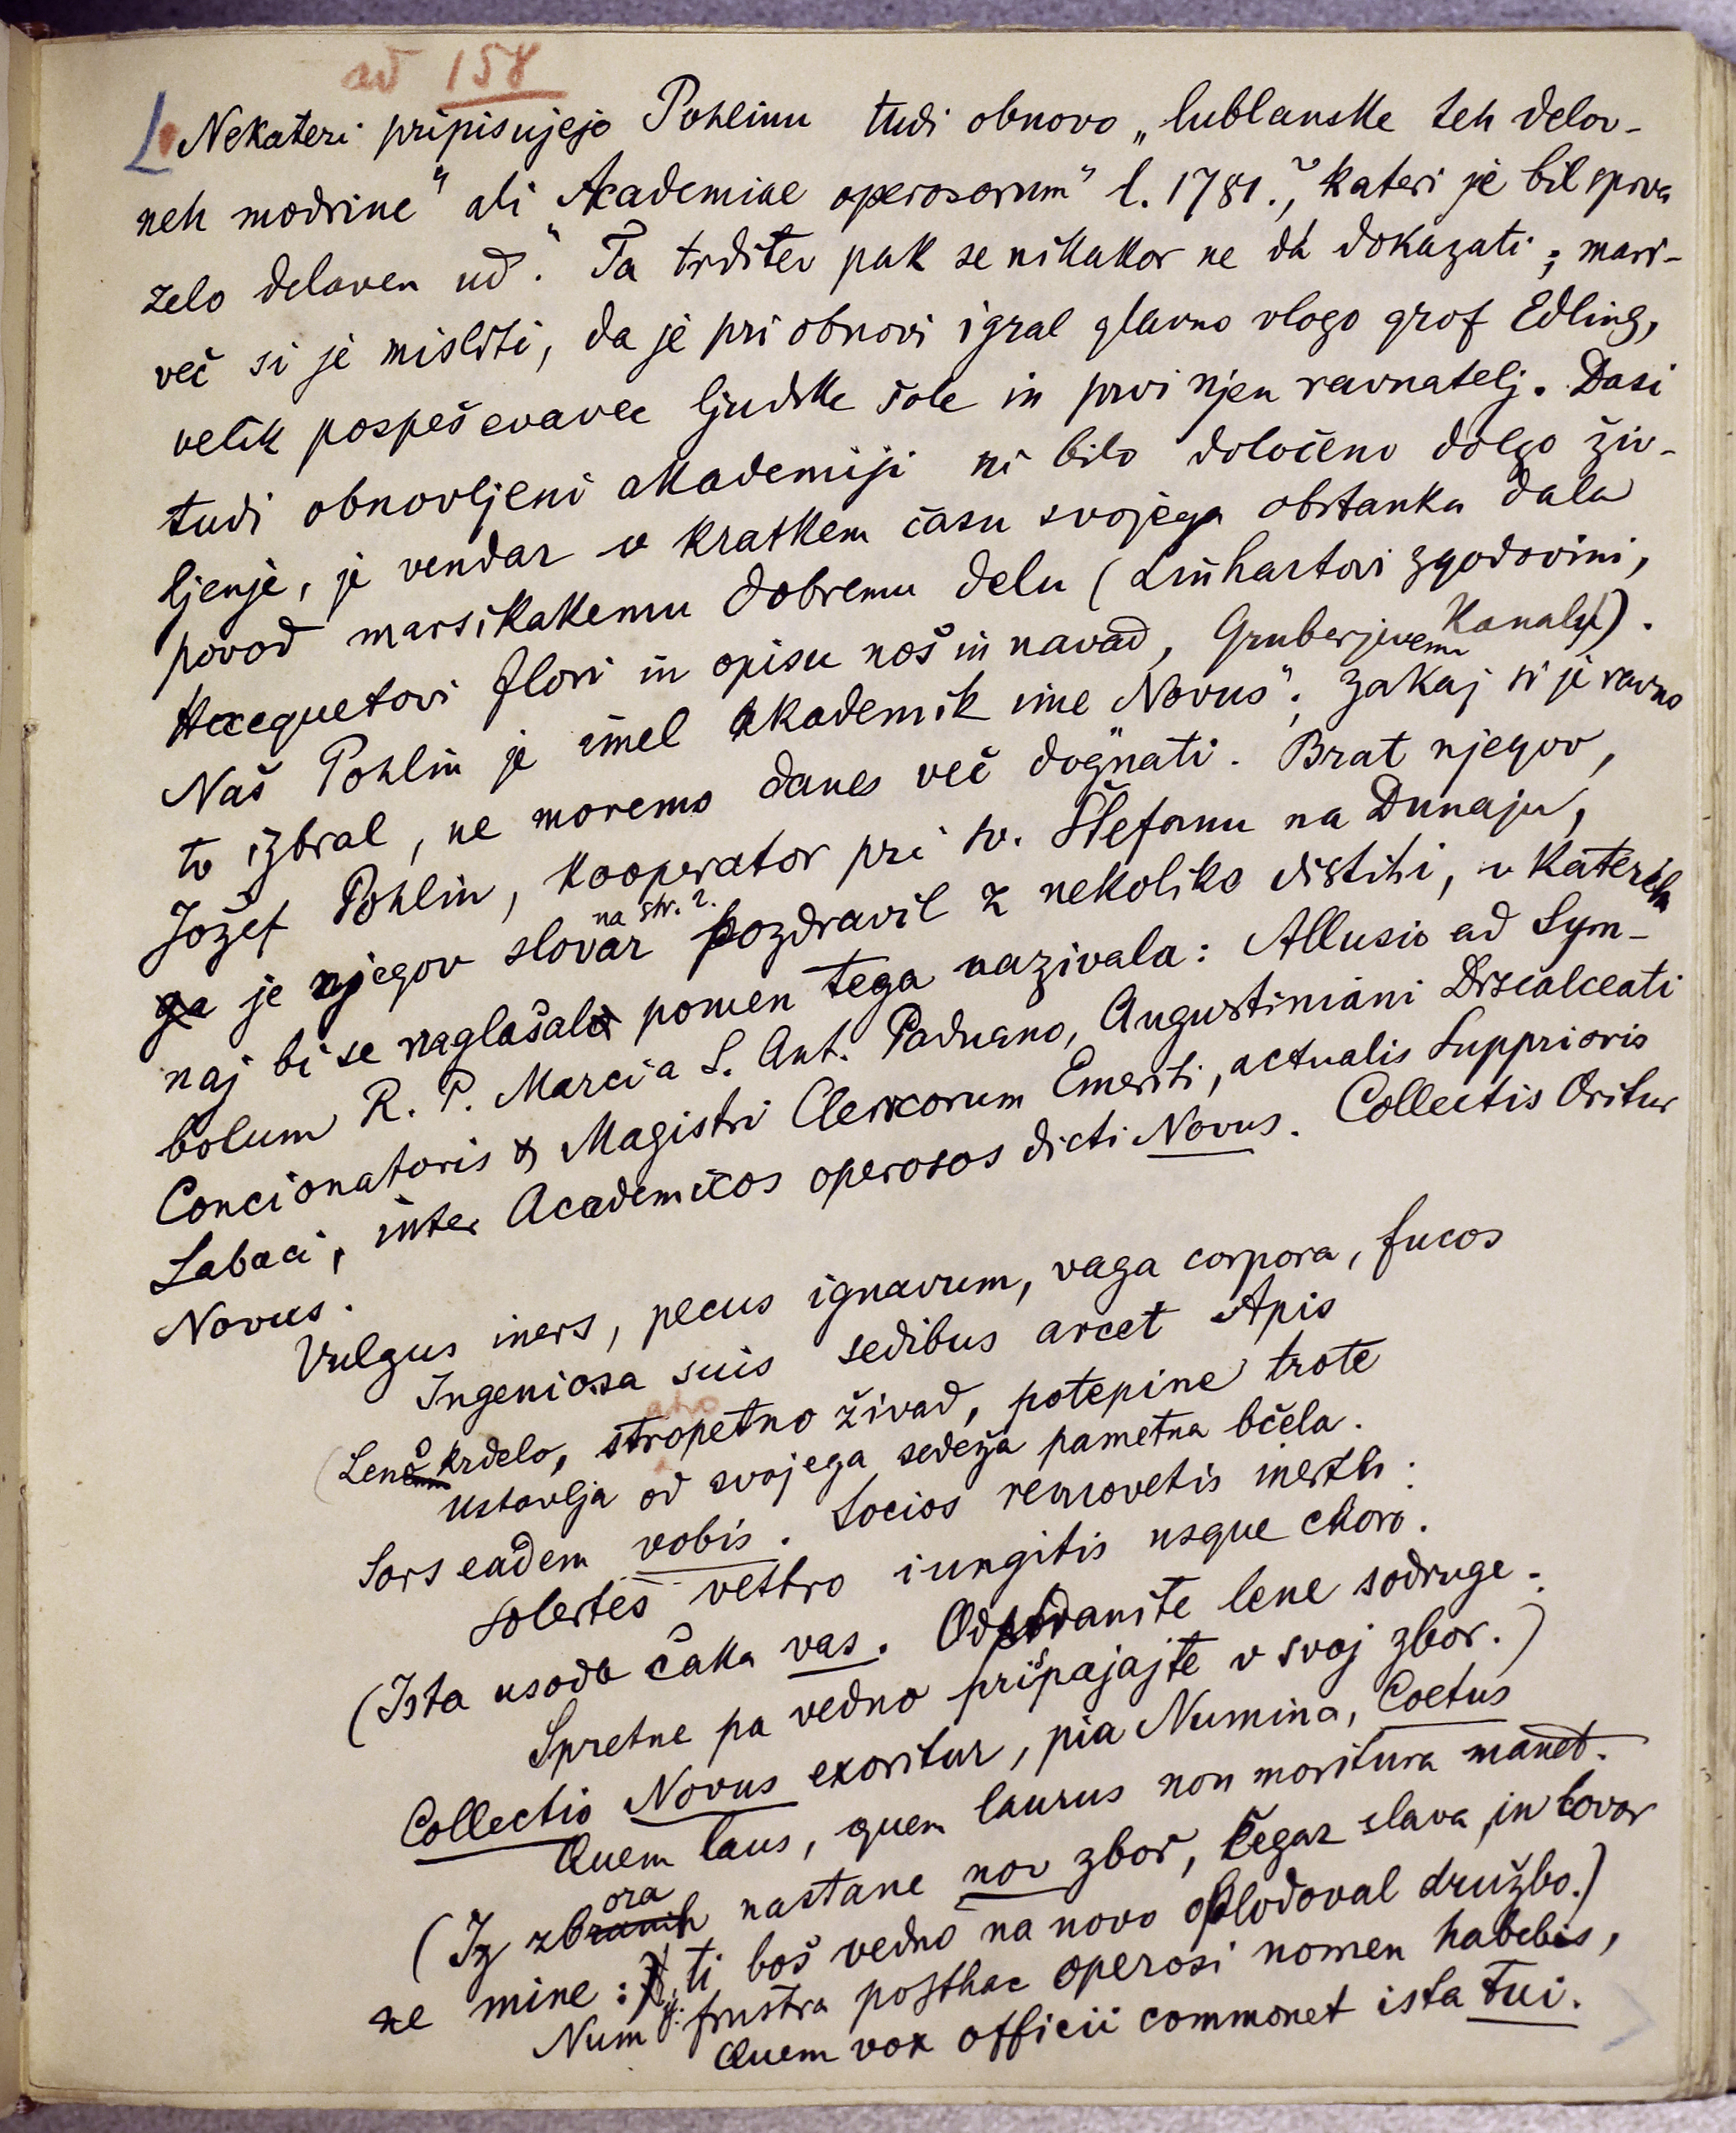 ad 158
Nekateri pripisujejo Pohlinu tudi obnovo „lublanske teh delov-
neh modrine" ali „Academiae operosorum" l. 1781., kateri je bil sprva
zelo delaven ud. Ta trditev pak se nikakor ne da dokazati; mari-
več si je misliti, da je pri obnovi igral glavno vlogo grof Edling,
velik pospeševavec ljudske šole in prvi njen ravnatelj. Dasi
tudi obnovljeni akademiji ni bilo določeno dolgo živ-
ljenje, je vendar v kratkem času svojega obstanka dala
povod marsikakemu dobremu delu (Linhartovi zgodovini,
Hacquetovi flori in opisu noš in navad, Gruberjevemu kanalu).
Naš Pohlin je imel akademik ime „Novus"; zakaj si je ravno
to izbral, ne moremo danes več dognati. Brat njegov,
Jožef Pohlin, kooperator pri sv. Štefanu na Dunaju,
je njegov slovar na str. 2. pozdravil z nekoliko distihi, v katerih
naj bi se naglašal pomen tega nazivala: Allusio ad Sym-
bolum R. P. Marci a S. Ant. Paduano, Augustiniani Discalceati
Concionatoris & Magistri Clericorum Emeriti, actualis Supprioris
Labaci, inter Academicos operosos dicti Novus. Collectis Oritur
Novus.
Vulgus iners, pecus ignavum, vaga corpora, fucos
Ingeniosa suis sedibus arcet Apis
(Leno krdelo, stropetno živad, potepine trote
Ustavlja od svojega sedeža pametna bčela.
Sors eadem vobis. Socios removetis inertes:
Solertes vestro iungitis usque choro.
(Ista usoda čaka vas. Odstranite lene sodruge:
Spretne pa vedno prispajajte v svoj zbor.)
Collectio Novus exoritur, pia Numina, Coetus
Quem laus, quem laurus non moritura manet.
(Iz zbora nastane nov zbor, čegar slava in lovor
ne mine: ti boš vedno na novo oplodoval družbo.)
Num frustra posthac operosi nomen habebis,
Quem vox officii commonet ista Tui.